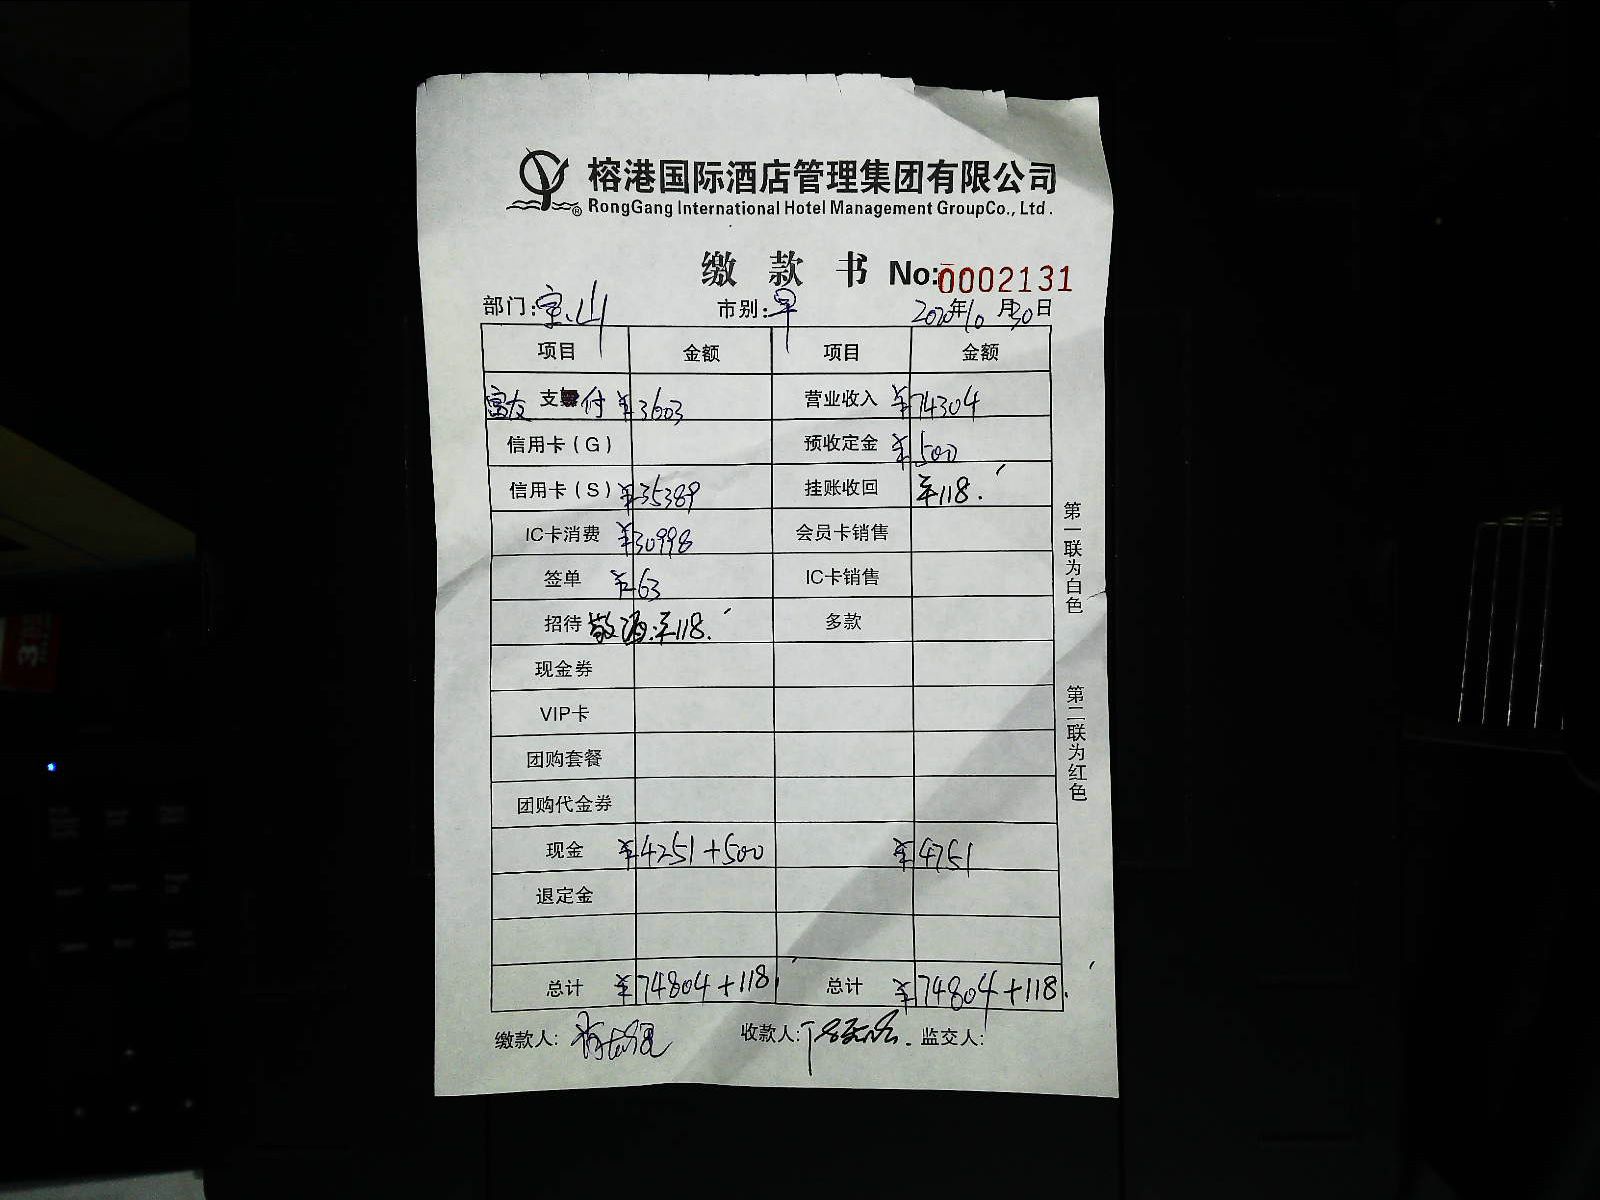 榕港国际酒店管理集团有限公司
RongGang International Hotel Management GroupCo., Ltd.
缴款书 No:0002131
部门:宝山 市别:早 2020年10月30日
项目 金额 项目 金额
富友支付 ¥3603 营业收入 ¥74304
信用卡(G) 预收定金 ¥500
信用卡(S) ¥35389 挂账收回 ¥118.
IC卡消费 ¥30998 会员卡销售
签单 ¥63 IC卡销售
招待 敬酒:¥118. 多款
现金券
VIP卡
团购套餐
团购代金券
现金 ¥4251+500 ¥4751
退定金
总计 ¥74804+118 总计 ¥74804+118.
缴款人: 收款人: 监交人:
第一联为白色
第二联为红色